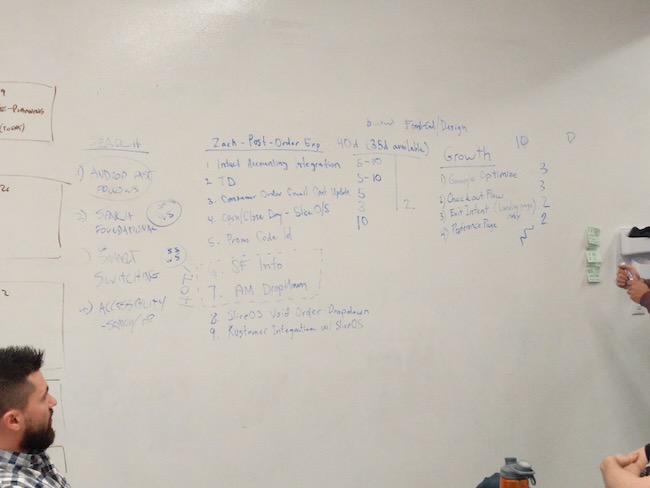 9
E-PLANNING
(TODAY)
2
SEARCH
1)
2) SEARCH
FOUNDATIONAL
3) SMART
SWITCHING
4) ACCESSIBILITY
SS
WS
Zach - Post-Order Exp 40d (35d available)
1 Intact Accounting integration 5-10
2 TD 5-10
3. Consumer Order Email Cost Update 5
4. Cash/Close Day - SliceOS 3
10
5. Promo Code Id
SF Info
7. AM Dropdown
8. SliceOS Void Order Dropdown
9. Kustomer Integration w/ SliceOS
2
Frontend/Design
10 D
Growth
1) Google Optimize 3
2) Checkout Flow 3
3) Exit Intent (Landing page) 2
4) Preference Page 2